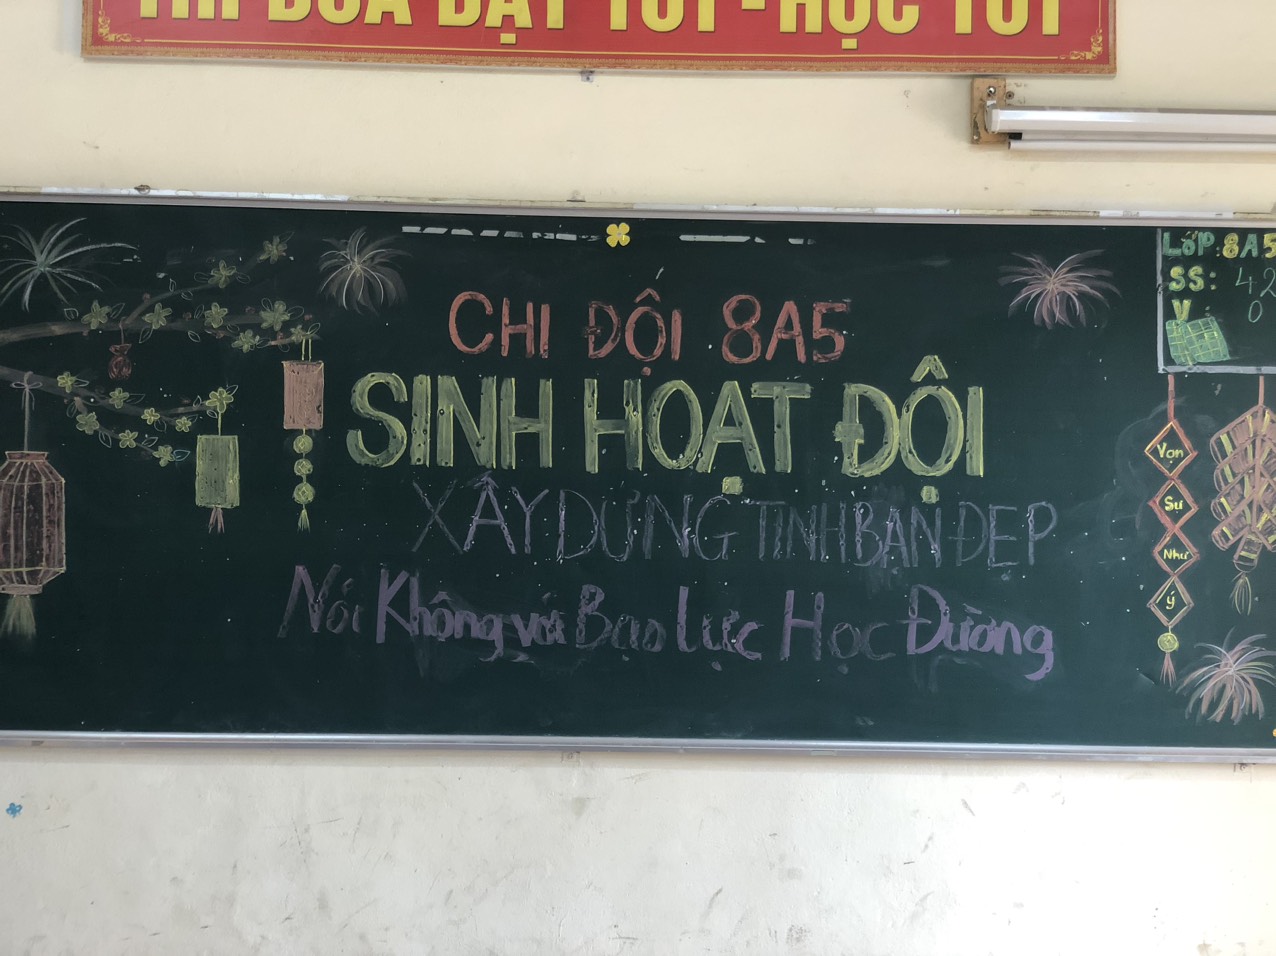 THI ĐUA DẠY TỐT - HỌC TỐT
CHI ĐỘI 8A5
SINH HOẠT ĐỘI
XÂY DỰNG TÌNH BẠN ĐẸP
Nói Không với Bạo Lực Học Đường
LỚP: 8A5
SS: 42
V 0
Vạn
Sự
Như
ý